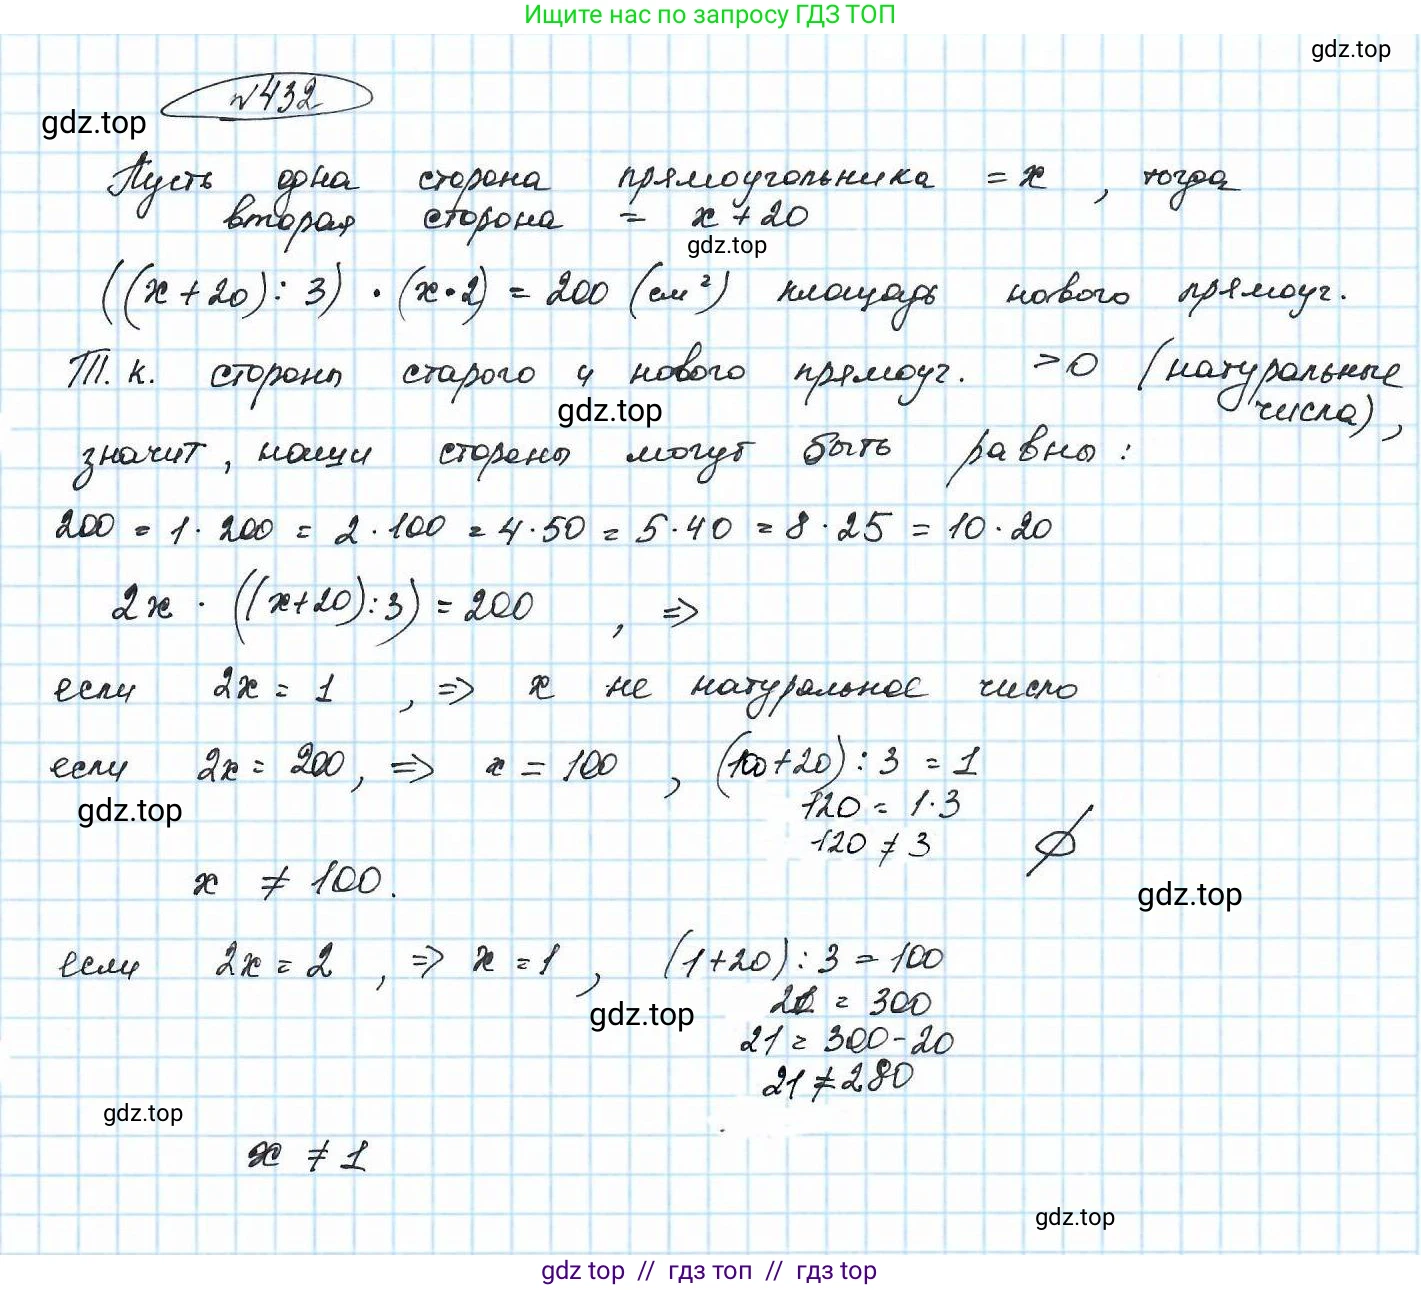 Ищите нас по запросу ГДЗ ТОП
gdz.top
№432
gdz.top
Пусть одна сторона прямоугольника = x , тогда
вторая сторона = x + 20
gdz.top
((x + 20) : 3) · (x · 2) = 200 (см²) площадь нового прямоуг.
Т. к. стороны старого и нового прямоуг. > 0 (натуральные
числа),
gdz.top
значит, наши стороны могут быть равны :
200 = 1 · 200 = 2 · 100 = 4 · 50 = 5 · 40 = 8 · 25 = 10 · 20
2x · ((x+20) : 3) = 200 , =>
если 2x = 1 , => x не натуральное число
если 2x = 200, => x = 100 , (100+20) : 3 = 1
gdz.top
120 = 1·3
120 ≠ 3 ∅
x ≠ 100.
gdz.top
если 2x = 2 , => x = 1 , (1+20) : 3 = 100
gdz.top
21 = 300
21 = 300-20
21 ≠ 280
gdz.top
x ≠ 1
gdz.top
gdz top // гдз топ // гдз top